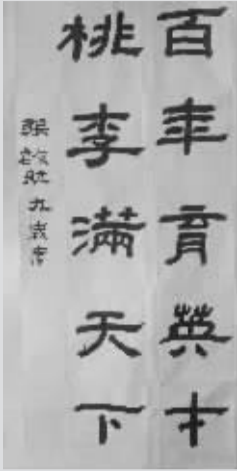 百年育英才
桃李满天下
九岁书